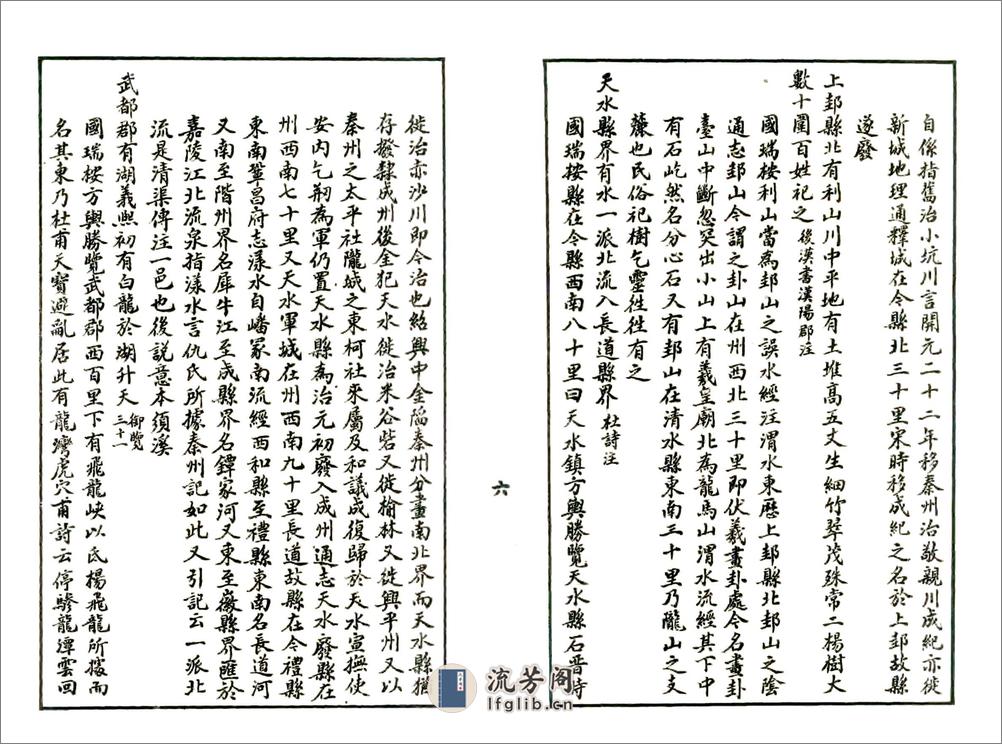 自係指舊治小坑川言開元二十二年移秦州治敬親川成紀亦徙
新城地理通釋城在今縣北三十里宋時移成紀之名於上邽故縣
遂廢
上邽縣北有利山川中平地有土堆高五丈生細竹翠茂殊常二楊樹大
數十圍百姓祀之後漢書漢陽郡注
國瑞按利山當為邽山之誤水經注渭水東歷上邽縣北邽山之陰
通志邽山今謂之卦山在州西北三十里即伏羲畫卦處今名畫卦
臺山中斷忽突出小山上有羲皇廟北為龍馬山渭水流經其下中
有石屹然名分心石又有邽山在清水縣東南三十里乃隴山之支
麓也民俗祀樹乞靈往往有之
天水縣界有水一派北流入長道縣界杜詩注
國瑞按縣在今縣西南八十里曰天水鎮方輿勝覽天水縣石晉時
六
徙治赤沙川即今治也紹興中金陷秦州分畫南北界而天水縣猶
存撥隸成州後金犯天水徙治米谷砦又徙榆林又徙興平州又以
秦州之太平社隴城之東柯社來屬及和議成復歸於天水宣撫使
安內乞剏為軍仍置天水縣為治元初廢入成州通志天水廢縣在
州西南七十里又天水軍城在州西南九十里長道故縣在今禮縣
東南鞏昌府志漾水自嶓冢南流經西和縣至禮縣東南名長道河
又南至階州界名犀牛江至成縣界名鐔家河又東至徽縣界匯於
嘉陵江北流泉指漾水言仇氏所據秦州記如此又引記云一派北
流是清渠傳注一邑也後說意本須溪
武都郡有湖義熙初有白龍於湖升天御覽三十一
國瑞按方輿勝覽武都郡西百里下有飛龍峽以氐楊飛龍所據而
名其東乃杜甫天寶避亂居此有龍灣虎穴甫詩云停驂龍潭雲回
流芳阁
lfglib.cn